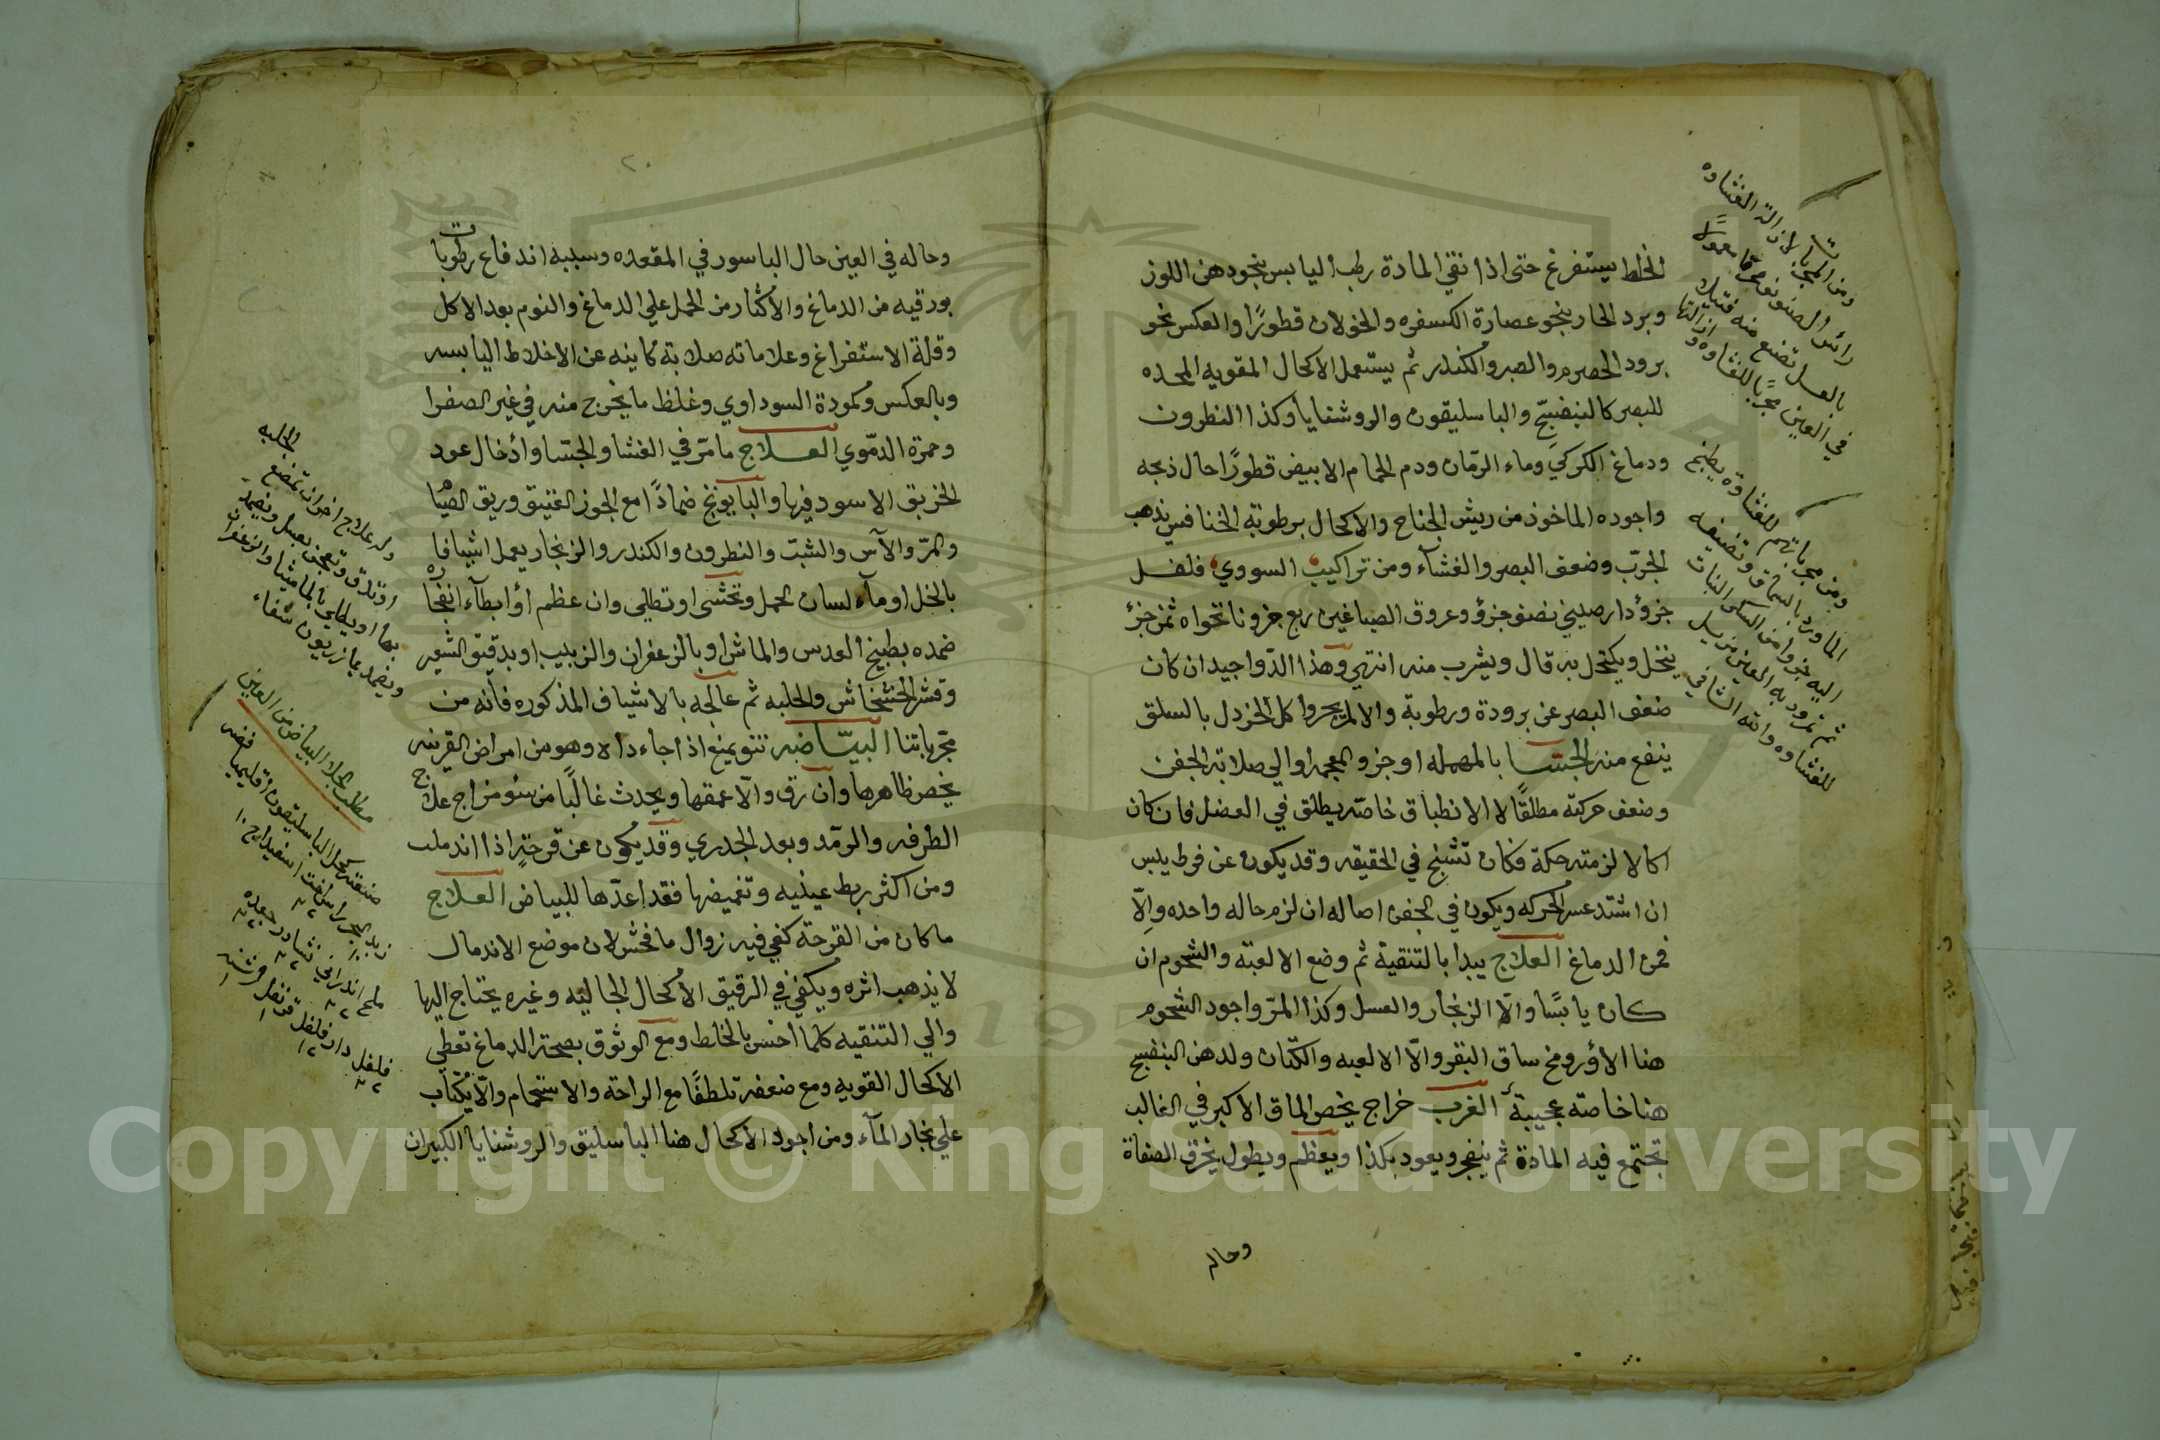 الخلط يستفرغ حتى اذا نقي المادة رطب اليابس بنحو دهن اللوز
وبرد الحار بنحو عصارة الكسفره والخولان قطورًا والعكس نحو
برود الحصرم والصبر والكندر ثم يستعمل الاكحال المقويه المحده
للبصر كالبنفسج والباسليقون والروشنايا وكذا النطرون
ودماغ الكركي وماء الرمان ودم الحمام الابيض قطورًا حال ذبحه
واجوده الماخوذ من ريش الجناح والاكحال برطوبة الخنافس يذهب
الجرب وضعف البصر والغشاء ومن تراكيب السويدي فلفل
جزؤ دارصيني نصف جزؤ وعروق الصباغين ربع جزو نانخواه ثمن جزؤ
ينخل ويكتحل به قال ويشرب منه انتهي وهذا الدوا جيد ان كان
ضعف البصر عن برودة ورطوبة والا لم يجز واكل الخردل بالسلق
ينفع منه الجسا بالمهمله اوخر والمعجمه اوالي صلابة الجفن
وضعف حركته مطلقًا لا الانطباق خاصة يطلق في العضل فان كان
اكالا لزمته حكة فكان تشنج في الحقيقه وقد يكون عن فرط يبس
ان اشتد عسر الحركه ويكون في الجفن اصاله ان لزم حاله واحده والّا
فمن الدماغ العلاج يبدا بالتنقية ثم وضع الالعبة والشحوم ان
كان يابسًا والّا الزنجار والعسل وكذا المرّ واجود الشحوم
هنا الأوز ومخ ساق البقر والّا الالعبه والكتان ولدهن البنفسج
هنا خاصة عجيبة الغرب خراج يخص الماق الاكبر في الغالب
تجتمع فيه المادة ثم ينفجر ويعود هكذا ويعظم ويطول يخرق الصفاة
وحاله
ومن المجربات لازالة الغشاوه
بالعسل تصنع منه فتيله
ومن مجرباتهم للغشاوة يطبخ
للغشاوه والله الشافي
٢٠
وحاله في العين حال الباسور في المقعده وسببه اندفاع رطوبات
بورقيه من الدماغ والأكثار من الحمل علي الدماغ والنوم بعد الاكل
وقلة الاستفراغ وعلاماته صلابة كاينه عن الاخلاط اليابسه
وبالعكس وكمودة السوداوي وغلظ ما يخرج منه في غير الصفرا
وحمرة الدموي العلاج ما مرّ في الغشا والجسا وأدخال عود
الخربق الاسود فيها والبابونج ضمادًا مع الجوز العتيق وريق الصيام
والمرّ والآس والشبت والنطرون والكندر والزنجار يعمل اشيافا
بالخل او مآء لسان الحمل وتحشى او تطلي وان عظم أو ابطآء انفجاره
ضمده بطبيخ العدس والماش او بالزعفران والزبيب او بدقيق الشعير
وقشر الخشخاش والحلبه ثم عالجه بالاشياف المذكوره فأنه من
مجرباتنا البياض نتو يمنع اذا جاء داه وهو من امراض القرنيه
يخص ظاهرها وان رق والا عمقها ويحدث غالبًا من سؤ مزاج علاج
الطرفه والرمد وبعد الجدري وقد يكون عن قرحةٍ اذا اندملت
ومن اكثر ربط عينيه وتغميضها فقد اعدّها للبياض العلاج
ما كان من القرحة كفي فيه زوال ما فحش لان موضع الاندمال
لا يذهب اثره ويكفي في الرقيق الأكحال الجاليه وغيره يحتاج اليها
والي التنقيه كلما احس بالخلط ومع الوثوق بصحة الدماغ تعطي
الاكحال القويه ومع ضعفه تلطفًا مع الراحة والاستحمام والّا يكتاب
علي بخار المآء ومن اجود الاكحال هنا الباسليق والروشنايا الكبيران
وله علاج اخر ان تمضغ الحلبه
او تدق وتعجن بعسل ويضمد
بها او يطلي بالماميثا والزعفران
مطلب لجلا البياض من العين
صفته كحل الباسليقون أقليميا فضه
ملح اندراني نشادر جعده
فلفل دارفلفل قرنفل
Copyright © King Saud University